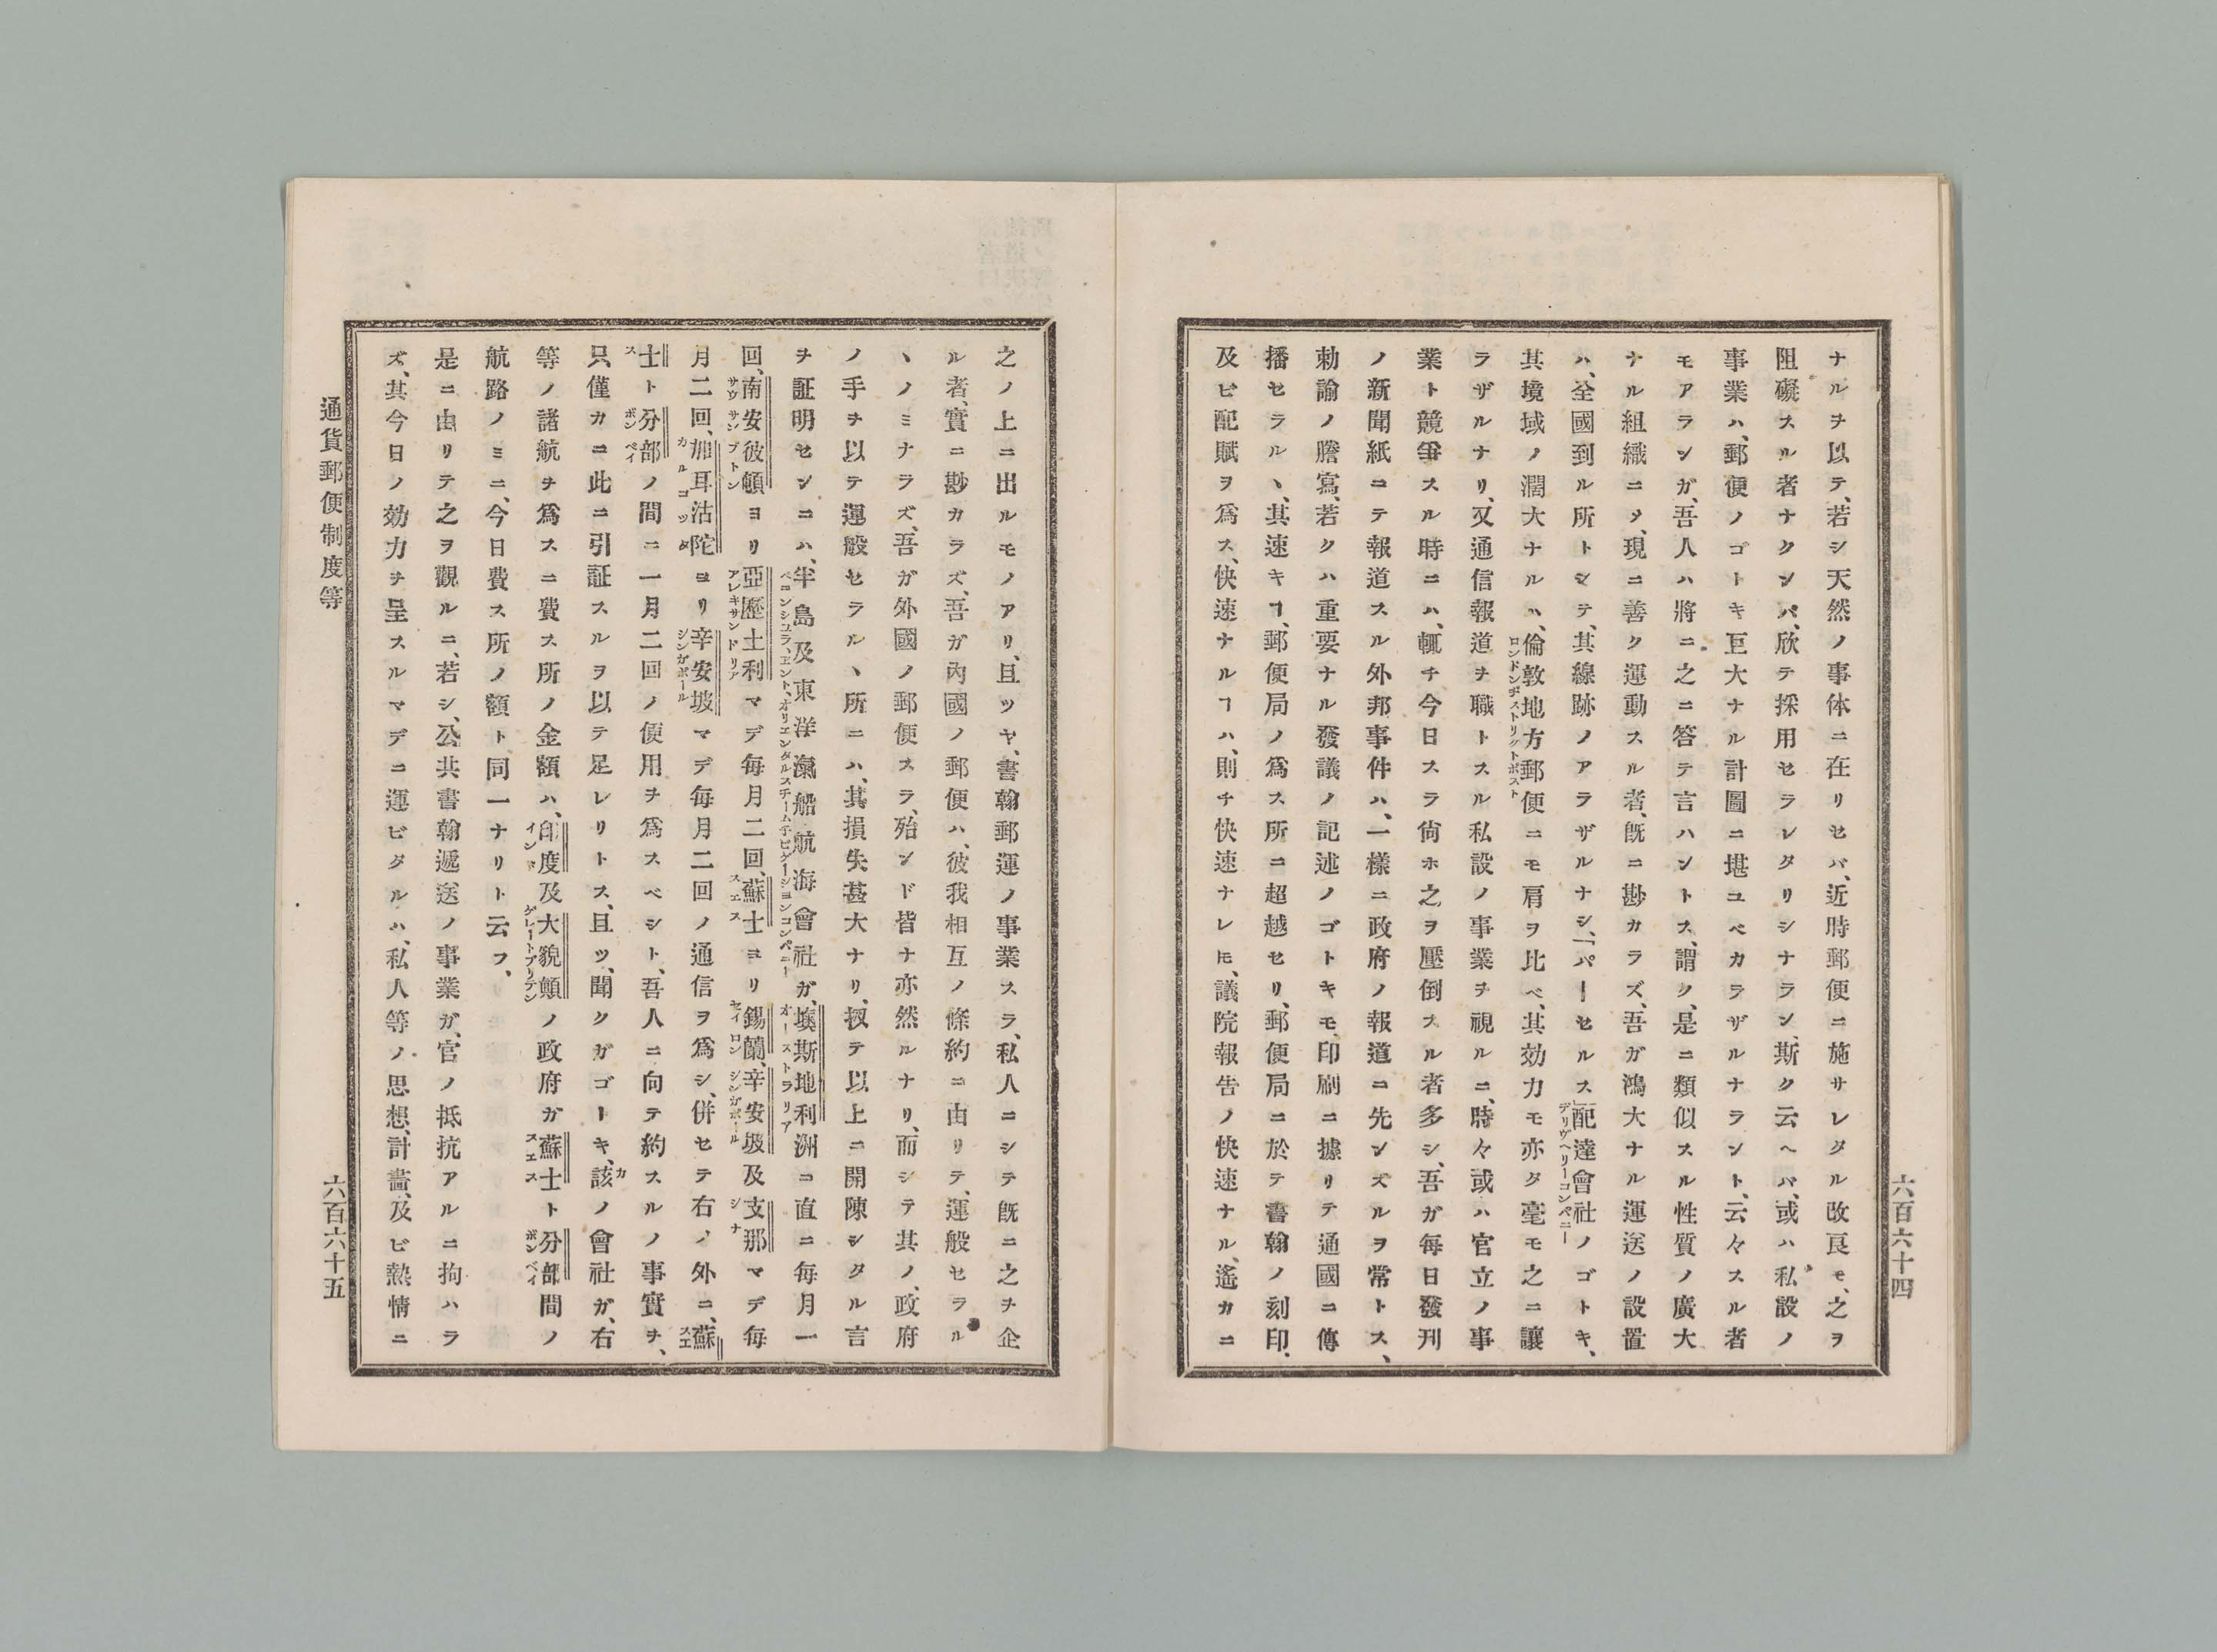 ナルヲ以テ、若シ天然ノ事体ニ在リセバ、近時郵便ニ施サレタル改良モ、之ヲ
阻礙スル者ナクンバ、欣テ採用セラレタリシナラン、斯ク云ヘバ、或ハ私設ノ
事業ハ、郵便ノゴトキ巨大ナル計圖ニ堪ユベカラザルナラント、云々スル者
モアランガ、吾人ハ將ニ之ニ答テ言ハントス、謂ク、是ニ類似スル性質ノ廣大
ナル組織ニメ、現ニ善ク運動スル者、既ニ尠カラズ、吾ガ鴻大ナル運送ノ設置
ハ、全國到ル所トシテ、其線跡ノアラザルナシ、「パーセルス」配達會社ノゴトキ、
デリヴヘリーコンペニー
其境域ノ濶大ナルハ、倫敦地方郵便ニモ肩ヲ比ベ、其効力モ亦タ毫モ之ニ讓
ロンドンヂストリクトポスト
ラザルナリ、又通信報道ヲ職トスル私設ノ事業ヲ視ルニ、時々或ハ官立ノ事
業ト競爭スル時ニハ、輒チ今日スラ尙ホ之ヲ壓倒スル者多シ、吾ガ每日發刊
ノ新聞紙ニテ報道スル外邦事件ハ、一樣ニ政府ノ報道ニ先ンズルヲ常トス、
勅諭ノ謄寫、若クハ重要ナル發議ノ記述ノゴトキモ、印刷ニ據リテ通國ニ傳
播セラルヽ、其速キヿ、郵便局ノ爲ス所ニ超越セリ、郵便局ニ於テ書翰ノ刻印、
及ビ配賦ヲ爲ス、快速ナルヿハ、則チ快速ナレ𪜈、議院報告ノ快速ナル、遙カニ
六百六十四
之ノ上ニ出ルモノアリ、且ツヤ、書翰郵運ノ事業スラ、私人ニシテ既ニ之ヲ企
ル者、實ニ尠カラズ、吾ガ內國ノ郵便ハ、彼我相互ノ條約ニ由リテ、運般セラル
ヽノミナラズ、吾ガ外國ノ郵便スラ、殆ンド皆ナ亦然ルナリ、而シテ其ノ、政府
ノ手ヲ以テ運般セラルヽ所ニハ、其損失甚大ナリ、扨テ以上ニ開陳シタル言
ヲ証明センニハ、半島及東洋滊船航海會社ガ、墺斯地利洲ニ直ニ每月一
オーストラリア
回、南安彼頓ヨリ亞歷土利マデ每月二回、蘇士ヨリ錫蘭、辛安坡及支那マデ每
サウサンプトン アレキサンドリア スエス セイロン シンガポール シナ
月二回、加耳沽陀ヨリ辛安坡マデ每月二回ノ通信ヲ爲シ、併セテ右ノ外ニ、蘇
カルコツタ シンガポール スエ
士ト分部ノ間ニ一月二回ノ便用ヲ爲スベシト、吾人ニ向テ約スルノ事實ヲ、
ス ボンベイ
只僅カニ此ニ引証スルヲ以テ足レリトス、且ツ、聞クガゴーキ、該ノ會社ガ、右
カ
等ノ諸航ヲ爲スニ費ス所ノ金額ハ、印度及大貌顚ノ政府ガ蘇士ト分部間ノ
インド グレートブリテン スエス ボンベイ
航路ノミニ、今日費ス所ノ額ト同一ナリト云フ、
是ニ由リテ之ヲ觀ルニ、若シ、公共書翰遞送ノ事業ガ、官ノ抵抗アルニ拘ハラ
ズ、其今日ノ効力ヲ呈スルマデニ運ビタルハ、私人等ノ思想、計畵、及ビ熱情ニ
通貨郵便制度等
六百六十五